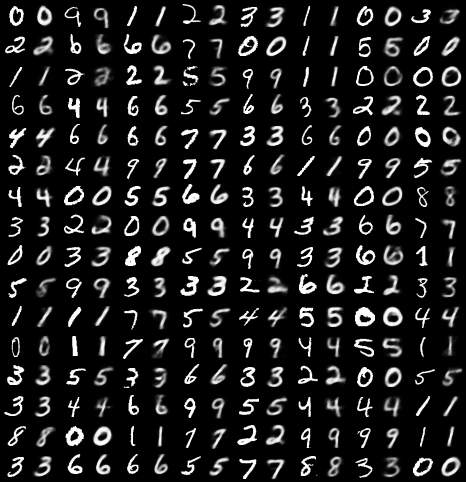 0 0 9 9 1 1 2 2 3 3 1 1 0 0 3 3
2 2 6 6 6 6 7 7 0 0 1 1 5 5 0 0
1 1 2 2 2 2 5 5 9 9 1 1 0 0 0 0
6 6 4 4 6 6 5 5 6 6 3 3 2 2 2 2
4 4 6 6 6 6 7 7 3 3 6 6 0 0 0 0
2 2 4 4 9 9 7 7 6 6 1 1 9 9 5 5
4 4 0 0 5 5 6 6 3 3 4 4 0 0 8 8
3 3 2 2 0 0 9 9 4 4 3 3 6 6 7 7
0 0 3 3 8 8 5 5 9 9 3 3 6 6 1 1
5 5 9 9 3 3 3 3 2 2 6 6 2 2 3 3
1 1 1 1 7 7 5 5 4 4 5 5 0 0 4 4
0 0 1 1 7 7 9 9 9 9 4 4 5 5 1 1
3 3 5 5 3 3 6 6 3 3 2 2 0 0 5 5
3 3 4 4 6 6 9 9 5 5 4 4 4 4 1 1
8 8 0 0 1 1 7 7 2 2 9 9 9 9 1 1
3 3 6 6 6 6 5 5 7 7 8 8 3 3 0 0